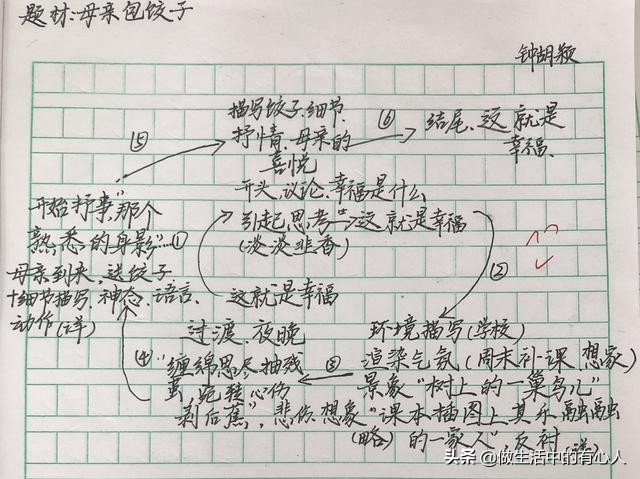 题材:母亲包饺子
钟胡颖
描写饺子.细节.
抒情.母亲的
喜悦
⑥
结尾.这就是
幸福.
⑤
开头.议论.幸福是什么
引起思考"这就是幸福
(淡淡韭香)
这就是幸福
①
②
环境描写(学校)
渲染气氛(周末补课 想家)
景象"树上的一巢鸟儿"
想象"课本插图上其乐融融
(略) 的一家人",反衬
③
过渡.夜晚
"缠绵思尽抽残
茧,宛转心伤
剥后蕉",悲伤
④
开始抒事"那个
熟悉的身影"
母亲到来,送饺子
+细节描写.神态.语言.
动作(详)
头条 @做生活中的有心人